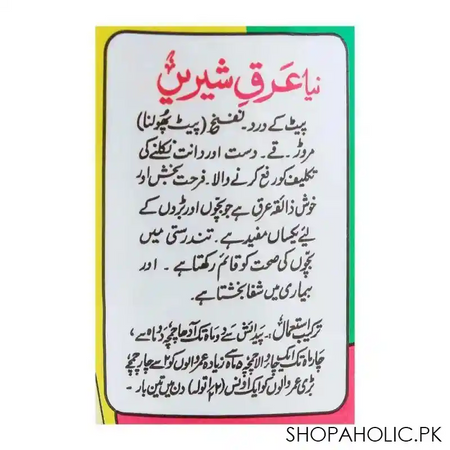 نیا عرقِ شیریں
پیٹ کے درد۔ نفخ (پیٹ پھولنا)
مروڑ۔ قے۔ دست اور دانت نکلنے کی
تکلیف کو رفع کرنے والا۔ فرحت بخش اور
خوش ذائقہ عرق ہے جو بچوں اور بڑوں کے
لئے یکساں مفید ہے۔ تندرستی میں
بچوں کی صحت کو قائم رکھتا ہے۔ اور
بیماری میں شفا بخشتا ہے۔
ترکیب استعمال:۔ پیدائش سے دو ماہ تک آدھا چمچہ دو ماہ سے
چار ماہ تک ایک چمچہ
بڑی عمر والوں کو ایک اونس (۲½ تولہ) دن میں تین بار۔
SHOPAHOLIC.PK